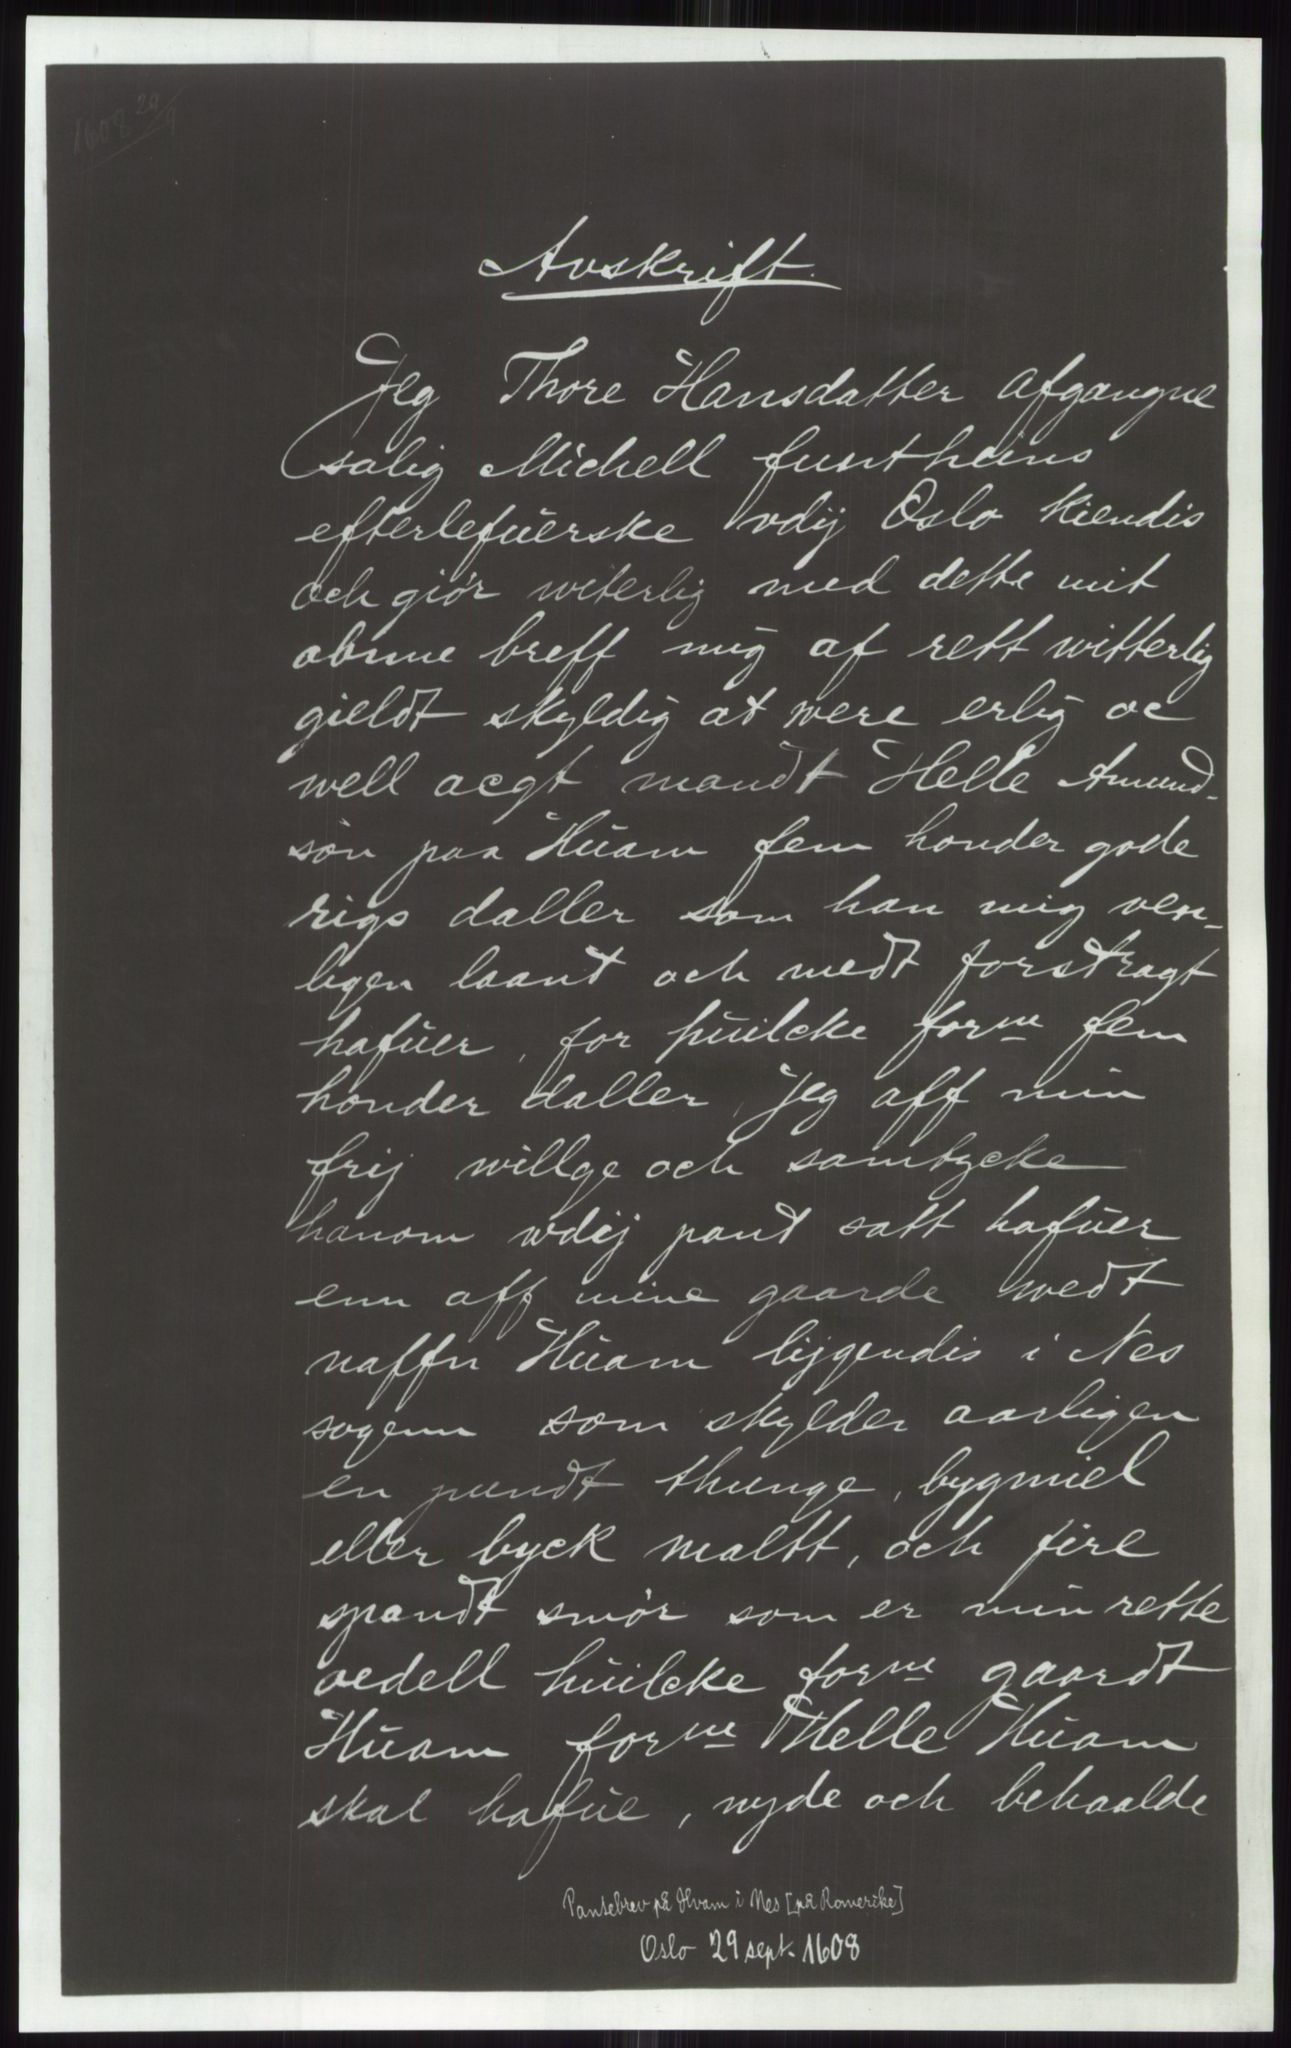 1608 29/9
Avskrift.
Jeg Thore Hansdatter afgangne
salig Michell funtheins
efterlefuerske vdij Oslo kiendis
och giör witerlig med dette mit
obnne breff mig af rett witterlig
gieldt skyldig at were erlig oc
well acgt mandt Helle Amund-
sön paa Huam fem honder gode
rigs daller som han mig ven-
ligen laant och medt forstragt
hafuer, for huilcke forne fem
honder daller, Jeg aff min
frij willge och samtycke
hanom wdij pant satt hafuer
enn aff mine gaarde medt
naffn Huam lijgendis i Nes
sogenn som skylder aarligen
en pundt thunge, bygmiel
eller byck maltt, och fire
spandt smör som er min rette
oedell huilcke forne gaardt
Huam forne Helle Huam
skal hafue, nyde och behaalde
Pantebrev på Hvam i Nes [på Romerike]
Oslo 29 sept. 1608